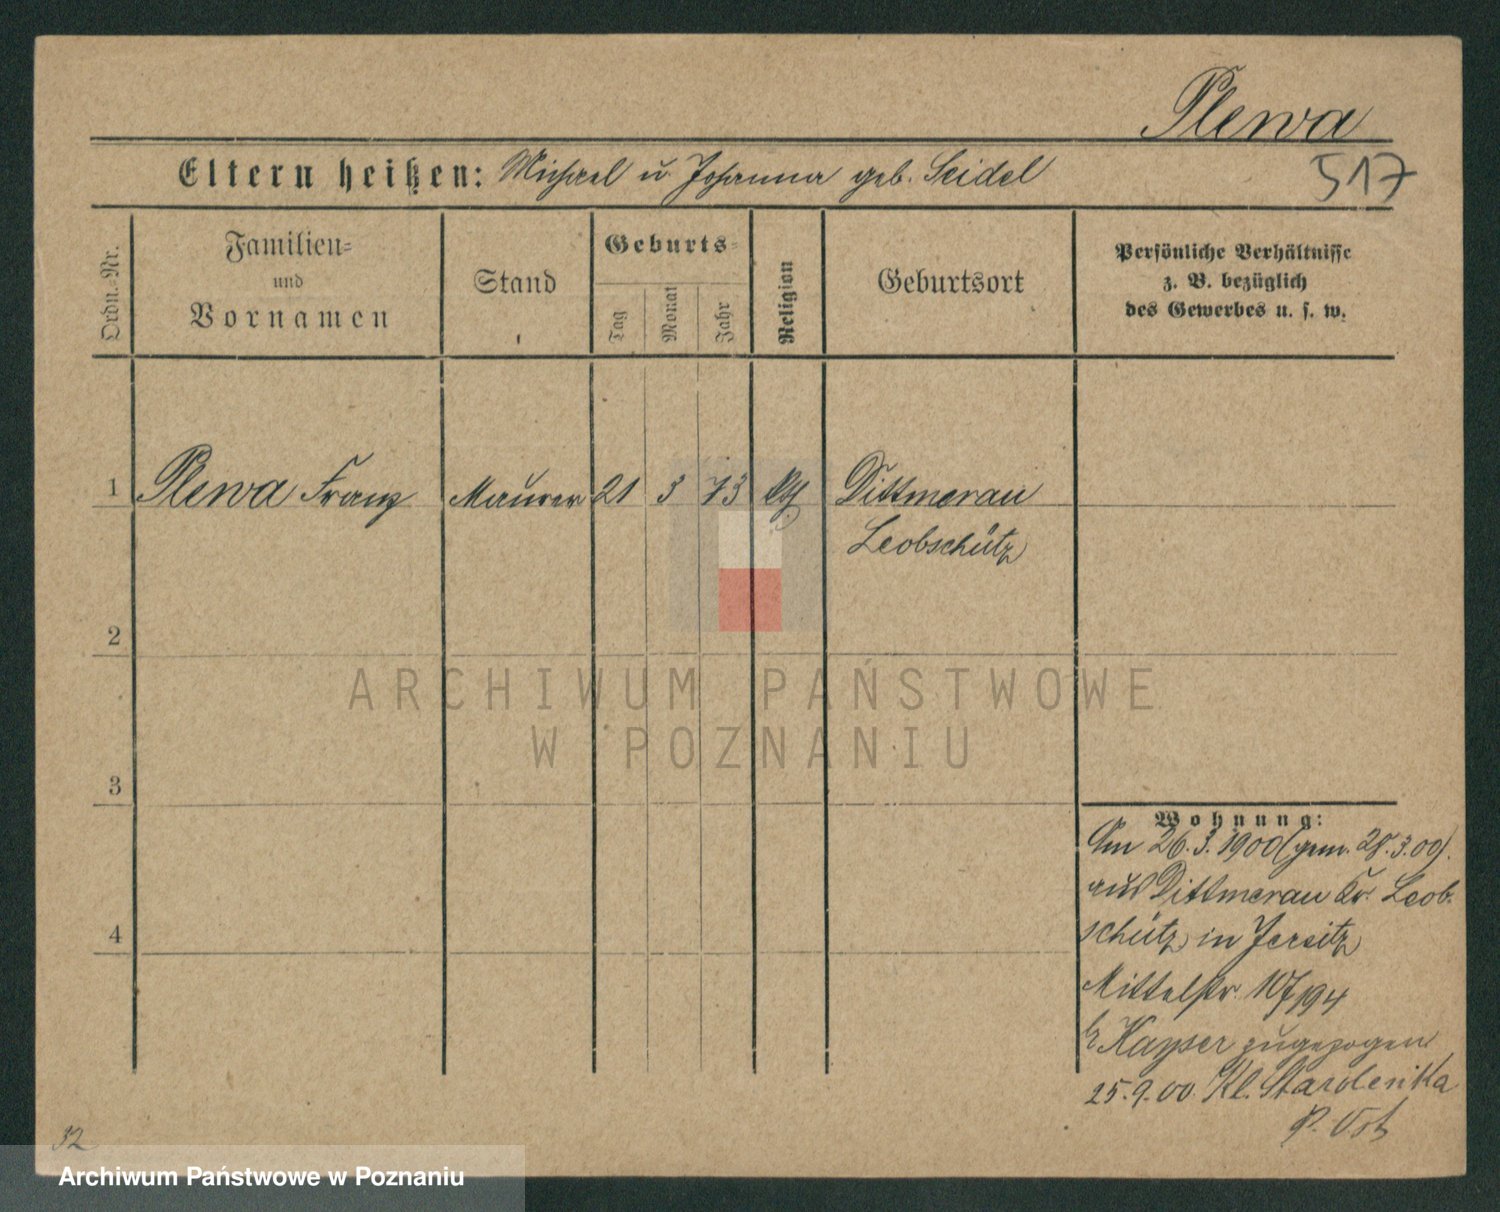 Plewa
Eltern heißen: Michael u Johanna geb. Seidel
517
Ordn.-Nr.
Familien=
und
Vornamen
Stand
Geburts=
Tag
Monat
Jahr
Religion
Geburtsort
Persönliche Verhältnisse
z. B. bezüglich
des Gewerbes u. s. w.
1 Plewa Franz Maurer 21 3 73 kth Dittmerau
Leobschütz
2
3
4
Wohnung:
Am 26.3.1900 (gem. 28.3.00)
aus Dittmerau Kr. Leob-
schütz in Jersitz
Mittelstr. 10/194
b/ Kayser zugezogen
25.9.00 Kl. Starolenka
P. Ost
32
ARCHIWUM PAŃSTWOWE
W POZNANIU
Archiwum Państwowe w Poznaniu